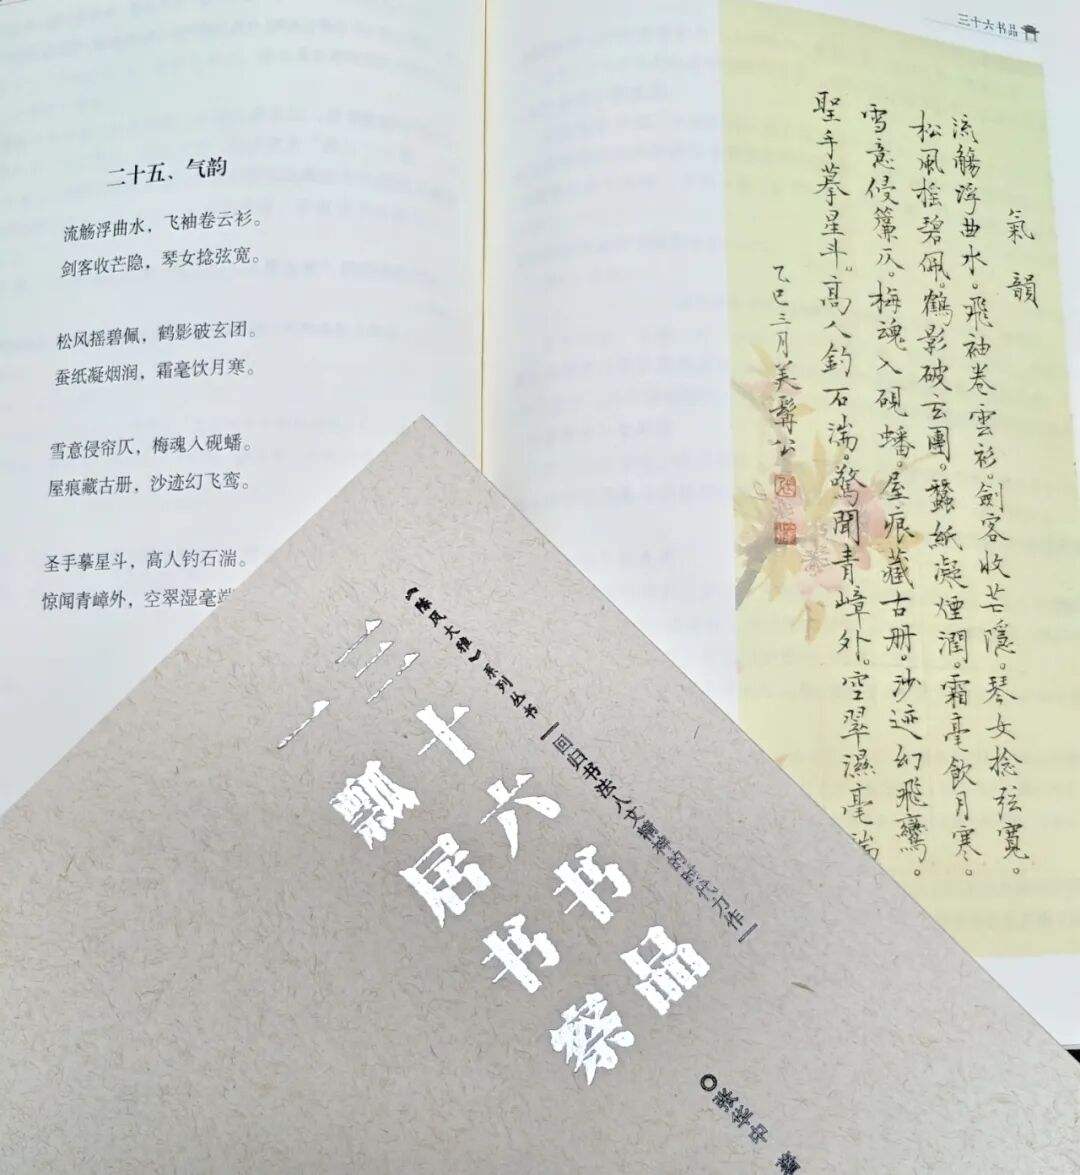 二十五、气韵
流觞浮曲水，飞袖卷云衫。
剑客收芒隐，琴女捻弦宽。
松风摇碧佩，鹤影破玄团。
蚕纸凝烟润，霜毫饮月寒。
雪意侵帘仄，梅魂入砚蟠。
屋痕藏古册，沙迹幻飞鸾。
圣手摹星斗，高人钓石湍。
惊闻青嶂外，空翠湿毫端
三十六书品
氣韻
流觴浮曲水。飛袖卷雲衫。劍客收芒隱。琴女捻弦寬。
松風摇碧佩。鶴影破玄團。蠶紙凝煙潤。霜毫飲月寒。
雪意侵簾仄。梅魂入硯蟠。屋痕藏古册。沙迹幻飛鸞。
聖手摹星斗。高人釣石湍。驚聞青嶂外。空翠濕毫端
乙巳三月美髯公
《陈风大雅》系列丛书
回归书法人文精神的时代力作
三十六书品
一瓢居书察
张华中 著